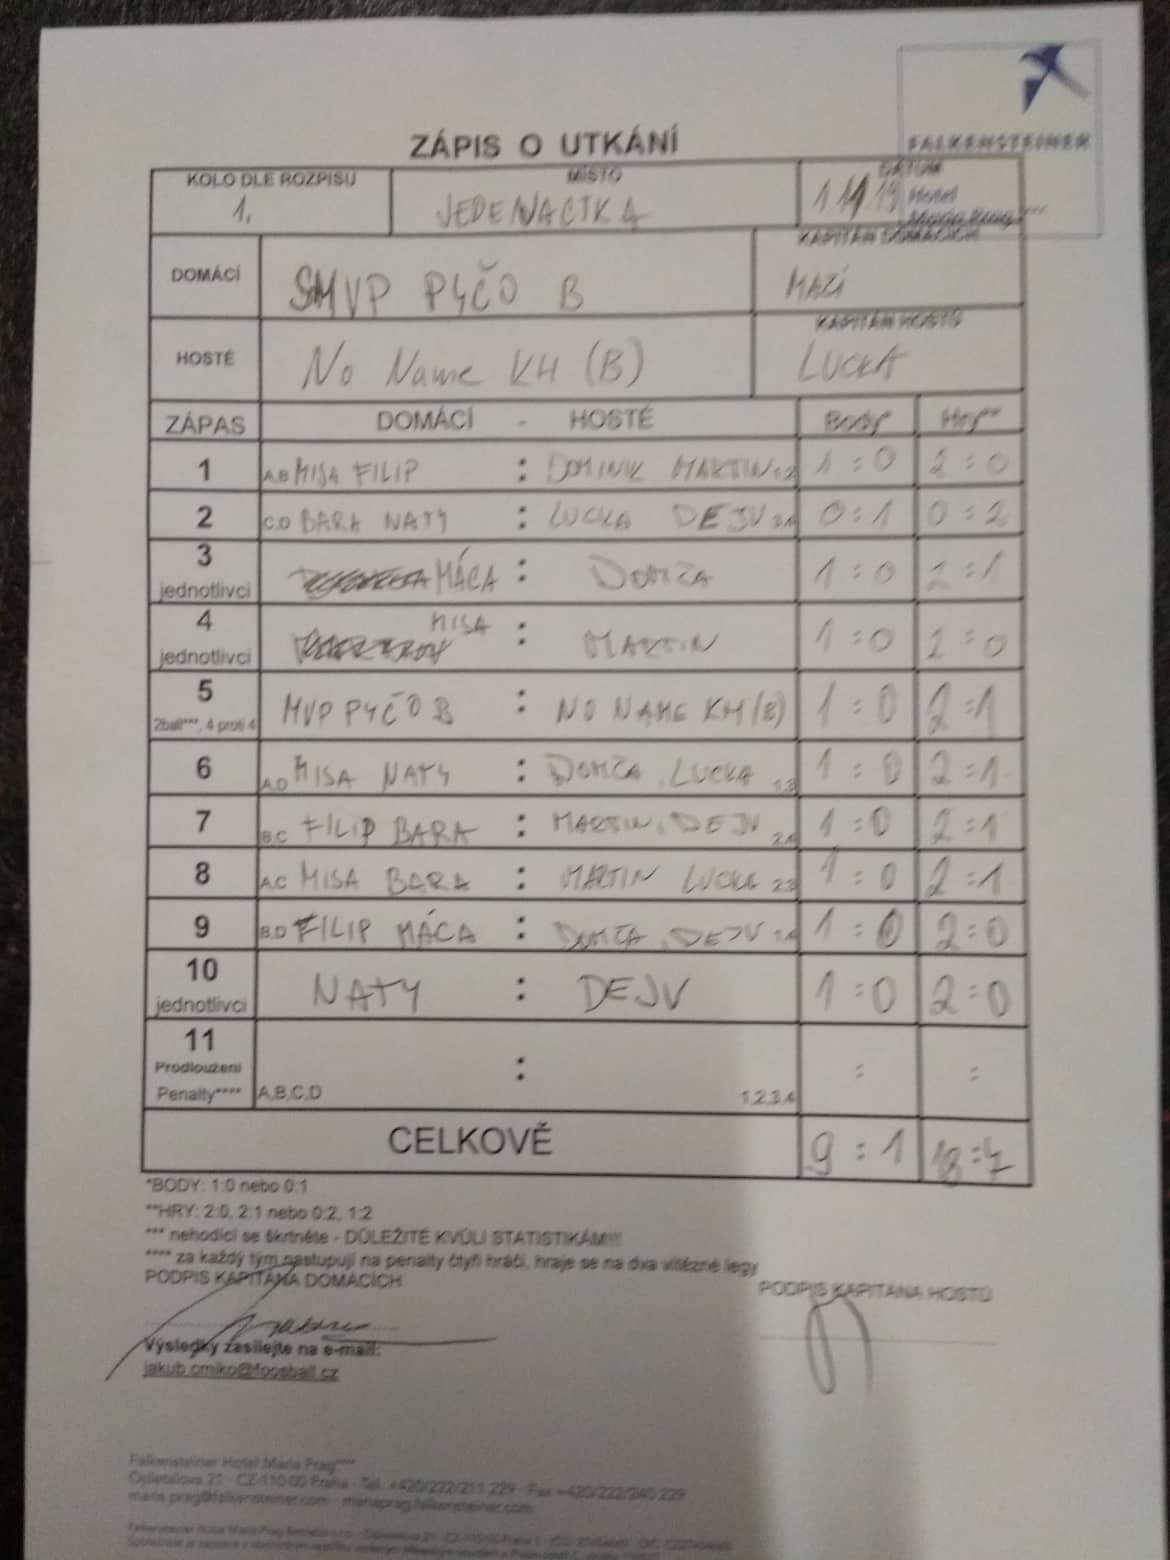 FALKENSTEINER
ZÁPIS O UTKÁNÍ
KOLO DLE ROZPISU MÍSTO DATUM
1. JEDENACTKA 1.11.19 Hotel
Maria Prag****
KAPITÁN DOMÁCÍCH
DOMÁCÍ MVP PYČO B MAZÍ
KAPITÁN HOSTŮ
HOSTÉ No Name KH (B) LUCKA
ZÁPAS DOMÁCÍ - HOSTÉ Body* Hry**
1 A,B MISA FILIP : DOMINIK MARTIN 1,2 1 : 0 2 : 0
2 C,D BARA NATY : LUCKA DEJV 3,4 0 : 1 0 : 2
3 jednotlivci MÁCA : DOMČA 1 : 0 2 : 1
4 jednotlivci MISA : MARTIN 1 : 0 2 : 0
5 2ball***, 4 proti 4 MVP PYČO B : NO NAME KH (B) 1 : 0 2 : 1
6 A,D MISA NATY : DOMČA, LUCKA 1,3 1 : 0 2 : 1
7 B,C FILIP BARA : MARTIN, DEJV 2,4 1 : 0 2 : 1
8 A,C MISA BARA : MARTIN LUCKA 2,3 1 : 0 2 : 1
9 B,D FILIP MÁCA : DOMČA, DEJV 1,4 1 : 0 2 : 0
10 jednotlivci NATY : DEJV 1 : 0 2 : 0
11 : : :
Prodloužení
Penalty**** A,B,C,D 1,2,3,4
CELKOVĚ 9 : 1 18 : 7
*BODY: 1:0 nebo 0:1
**HRY: 2:0, 2:1 nebo 0:2, 1:2
*** nehodící se škrtněte - DŮLEŽITÉ KVŮLI STATISTIKÁM!!!
**** za každý tým nastupují na penalty čtyři hráči, hraje se na dva vítězné legy
PODPIS KAPITÁNA DOMÁCÍCH PODPIS KAPITÁNA HOSTŮ
Výsledky zasílejte na e-mail:
jakub.cmiko@foosball.cz
Falkensteiner Hotel Maria Prag****
Opletalova 21 · CZ-110 00 Praha · Tel. +420/222/211 229 · Fax +420/222/240 229
maria.prag@falkensteiner.com · mariaprag.falkensteiner.com